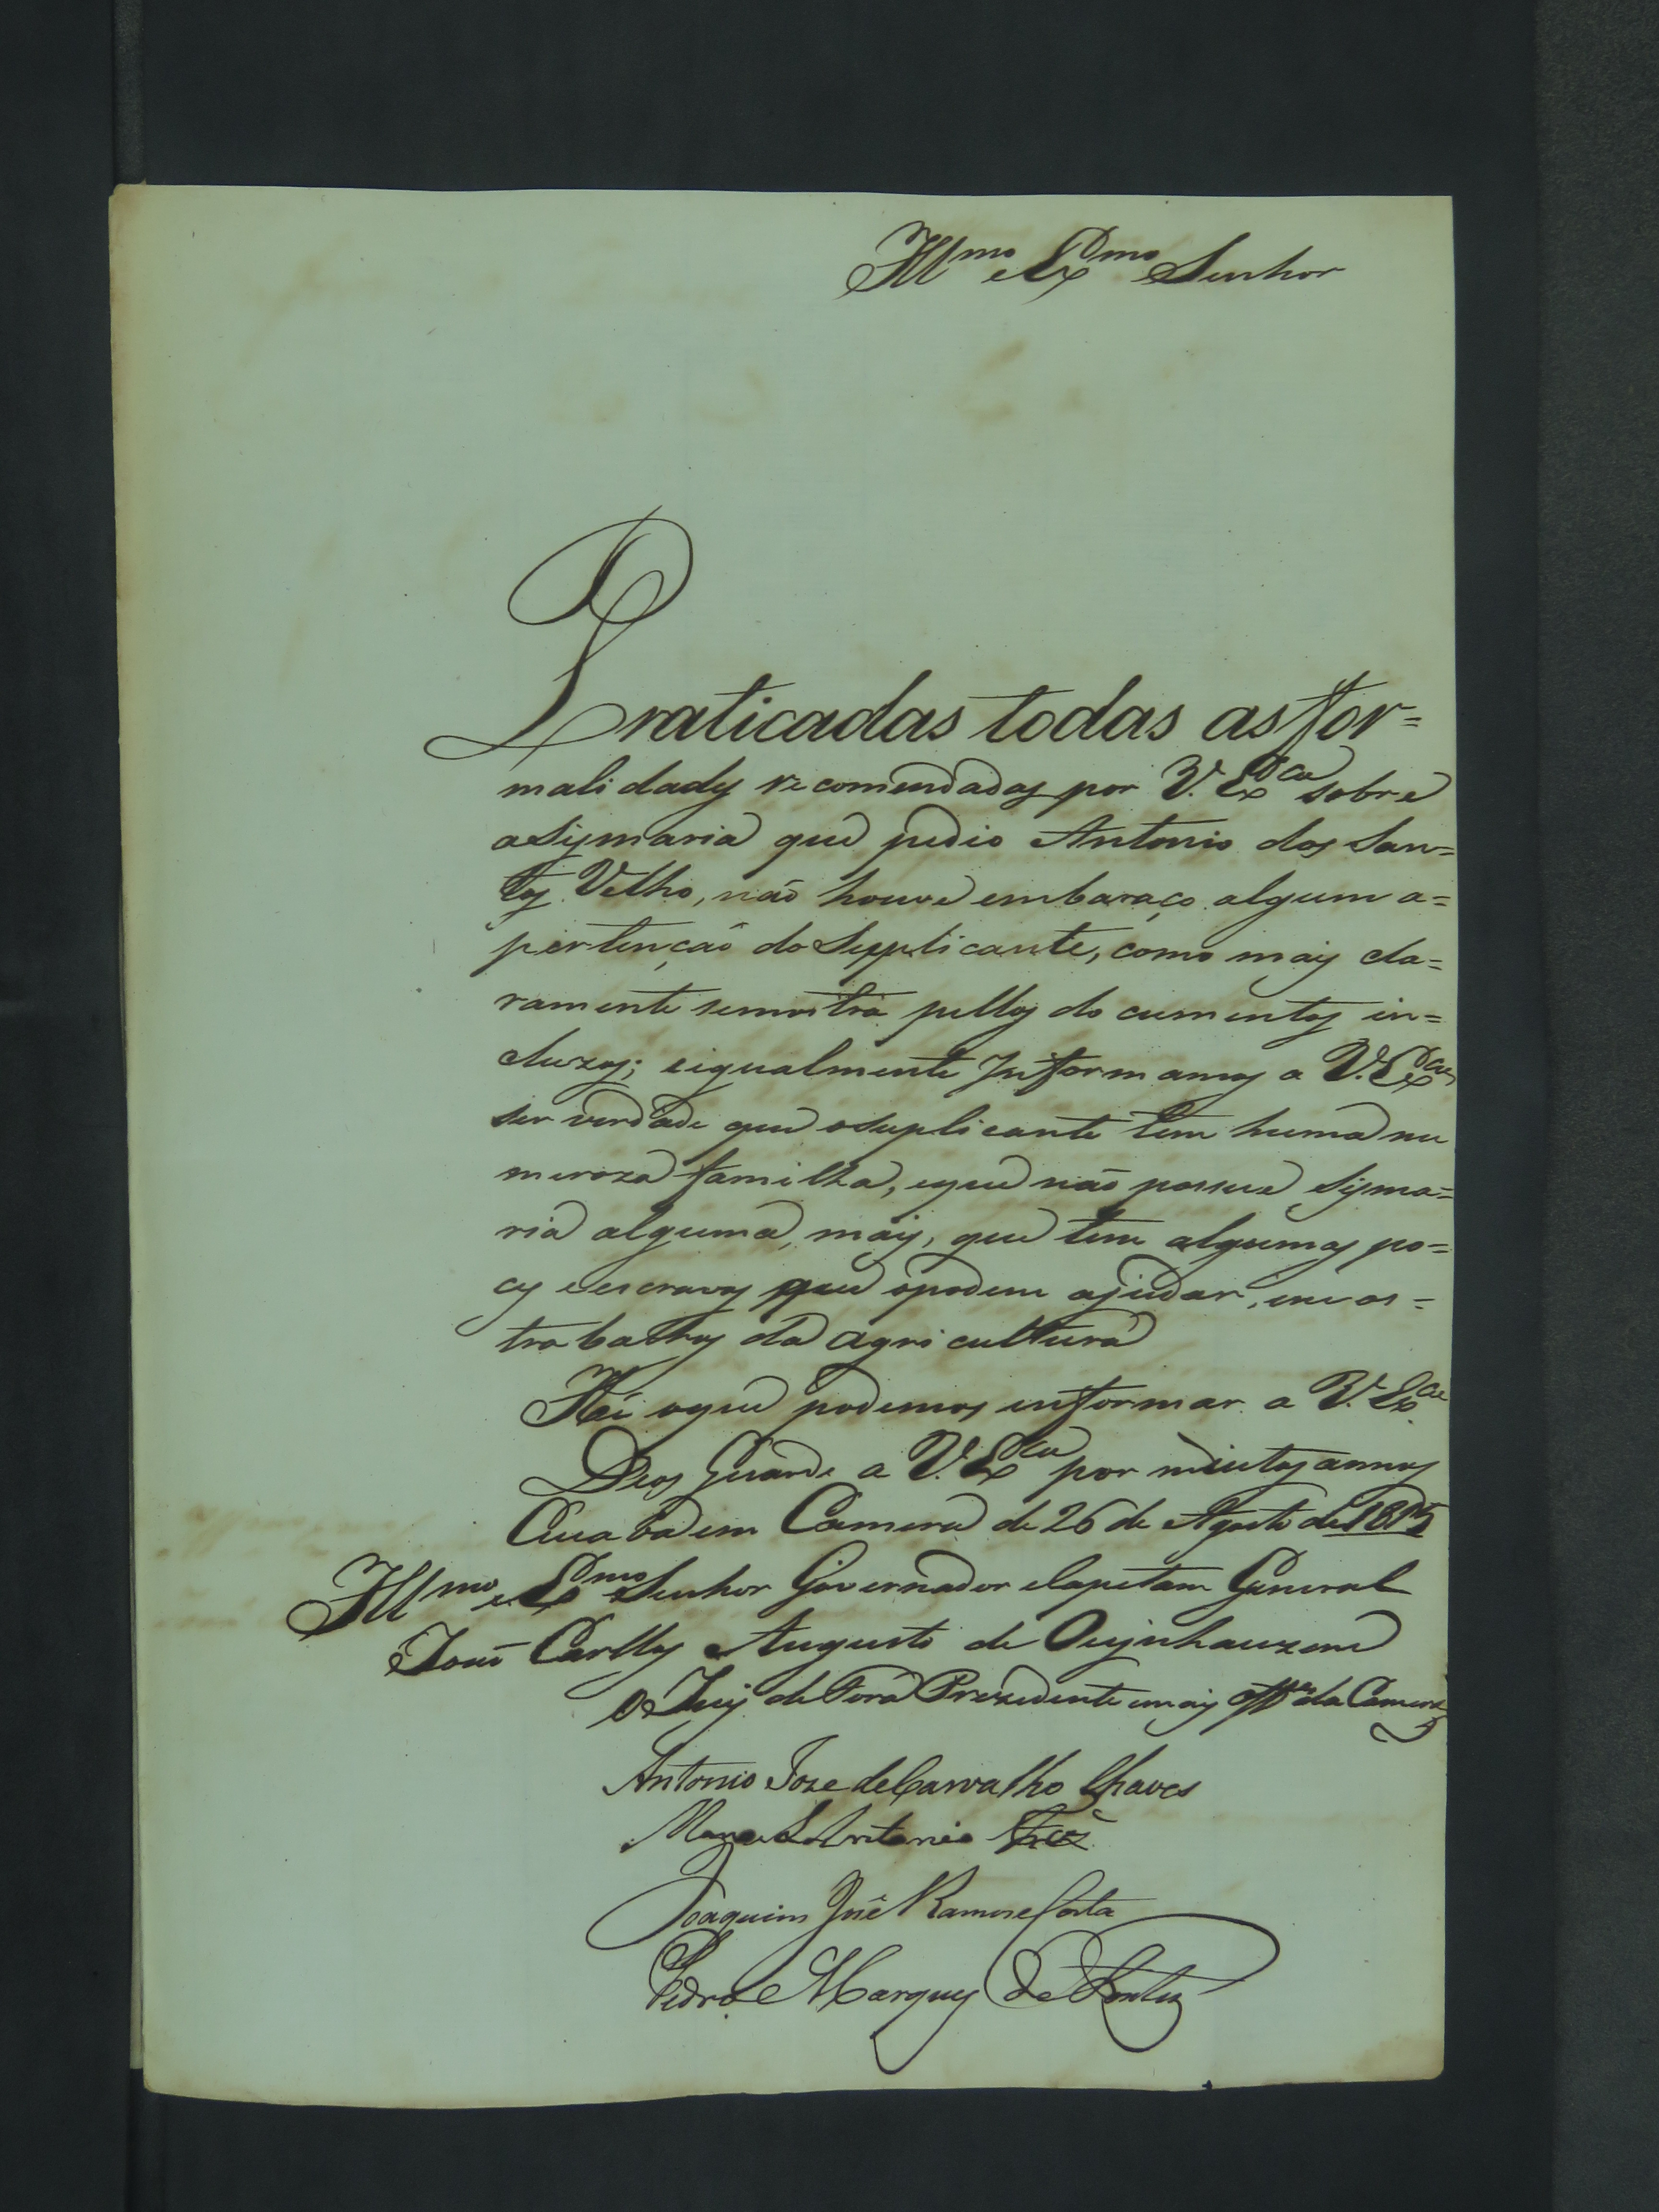 Illmo e Exmo Senhor
Praticadas todas as for=
malidades recomendadas por V. Exca sobre
a Sysmaria que pedio Antonio dos San=
tos Velho, não houve embaraço algum a=
pertenção do Supplicante, como mais cla=
ramente semostra pellos documentos in=
cluzos; eigualmente Informamos a V. Exca
ser verdade que osuplicante tem huma nu
meroza familha, eque não possue Sysma=
ria alguma, mais, que tem algumas po=
cos eescravos que opodem ajudar, em os=
trabalhos da agricultura
Hé oque podemos informar a V. Exca
Deos Guarde a V. Exca por muitos annos
Cuiaba em Camera de 26 de Agosto de 1815
Illmo e Exmo Senhor Governador eCapitam General
João Carllos Augusto de Oeynhauzem
O Juiz de Fora Prezidente emais Offes da Camera
Antonio Joze deCarvalho Chaves
Manoel Antonio
Joaquim José Ramos e Costa
Pedro Marques de Fontes